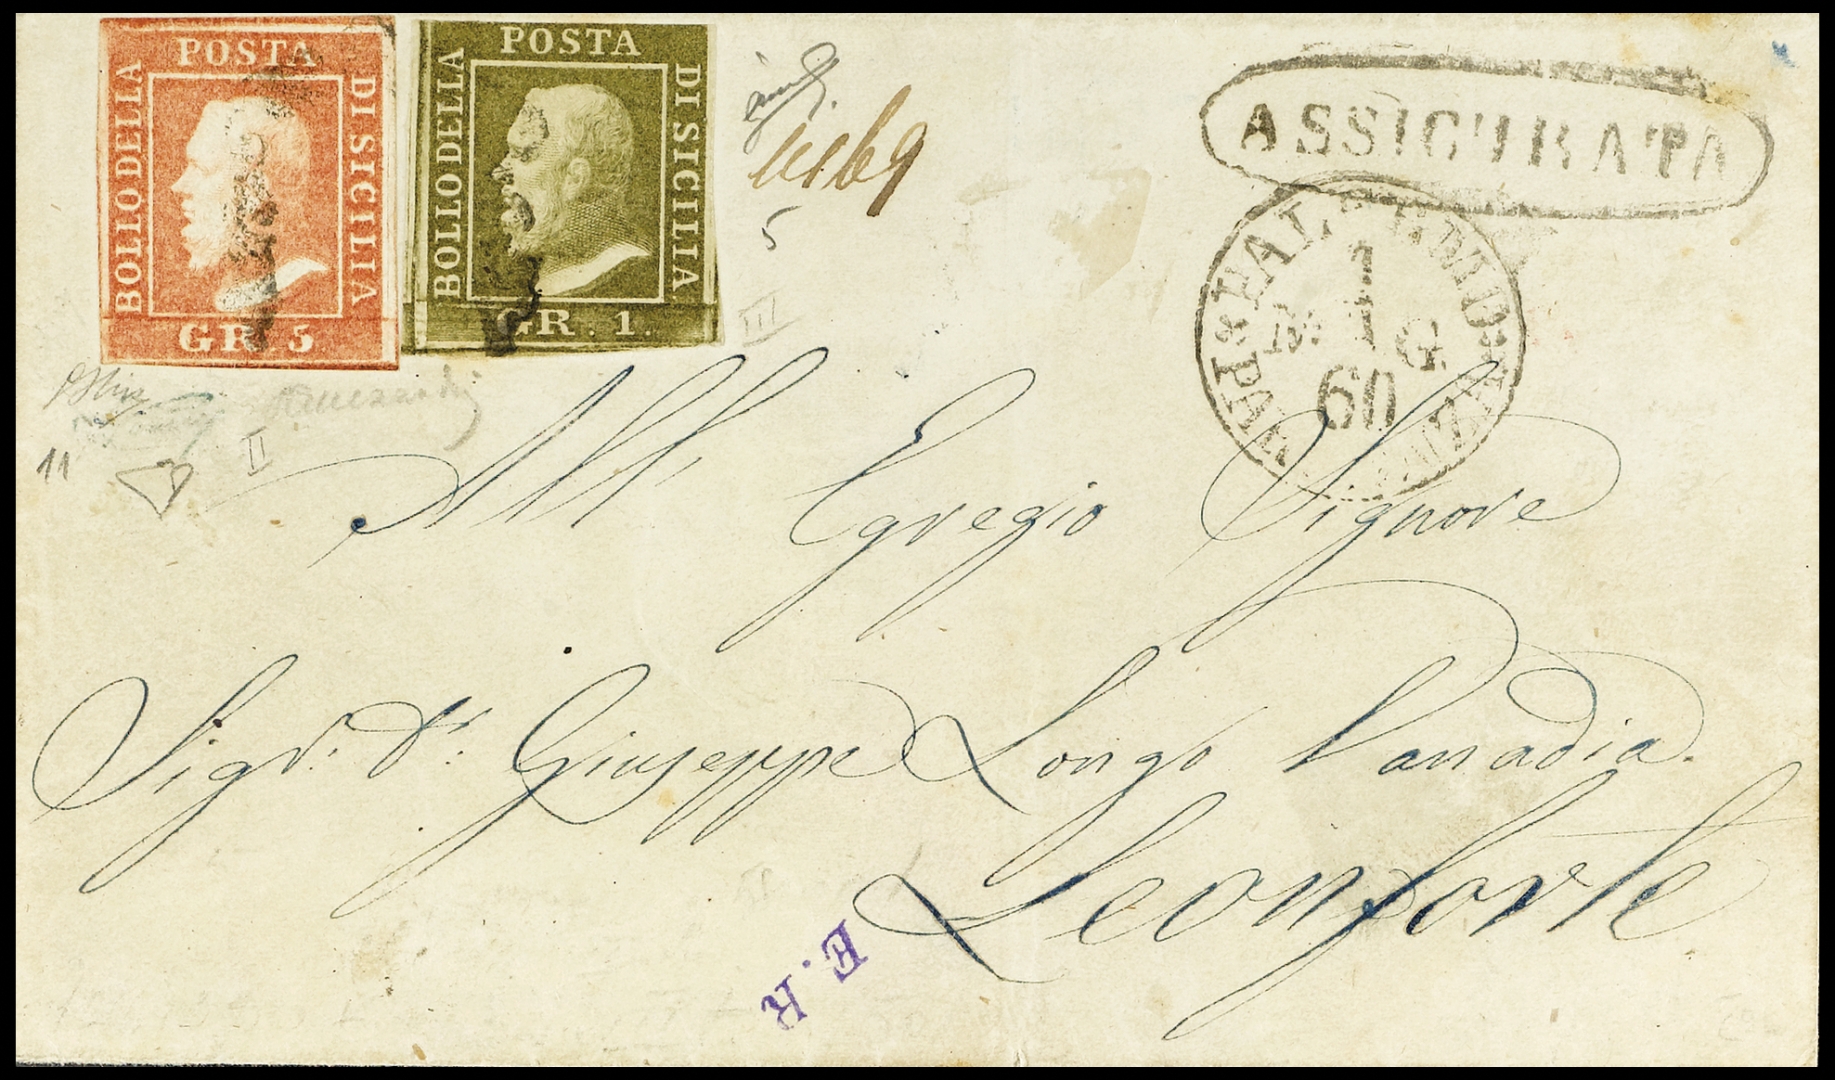 BOLLO DELLA POSTA DI SICILIA
GR. 5
BOLLO DELLA POSTA DI SICILIA
GR. 1.
5
ASSICURATA
PARTENZA DA PALERMO
1
MAG
60
III
II
11
All' Egregio Signore
Sigr. Dr. Giuseppe Longo Vanadia.
Leonforte
E.R